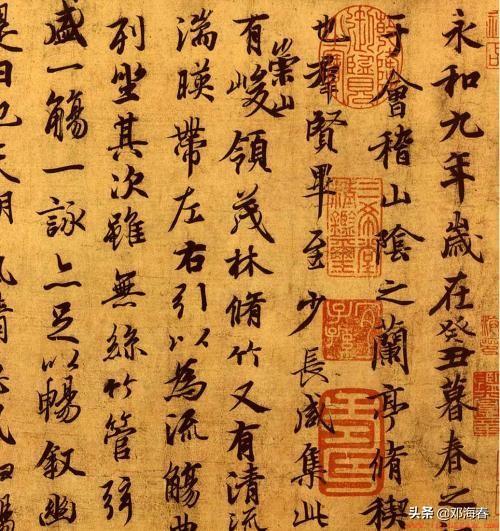 永和九年歲在癸丑暮春之
于會稽山陰之蘭亭脩稧
也羣賢畢至少長咸集此
有崇山峻領茂林脩竹又有清流
湍暎帶左右引以為流觴曲
列坐其次雖無絲竹管弦
盛一觴一詠亦足以暢叙幽
是日也天朗氣清
三希堂精鑑璽
宜子孫
头条 @邓海春